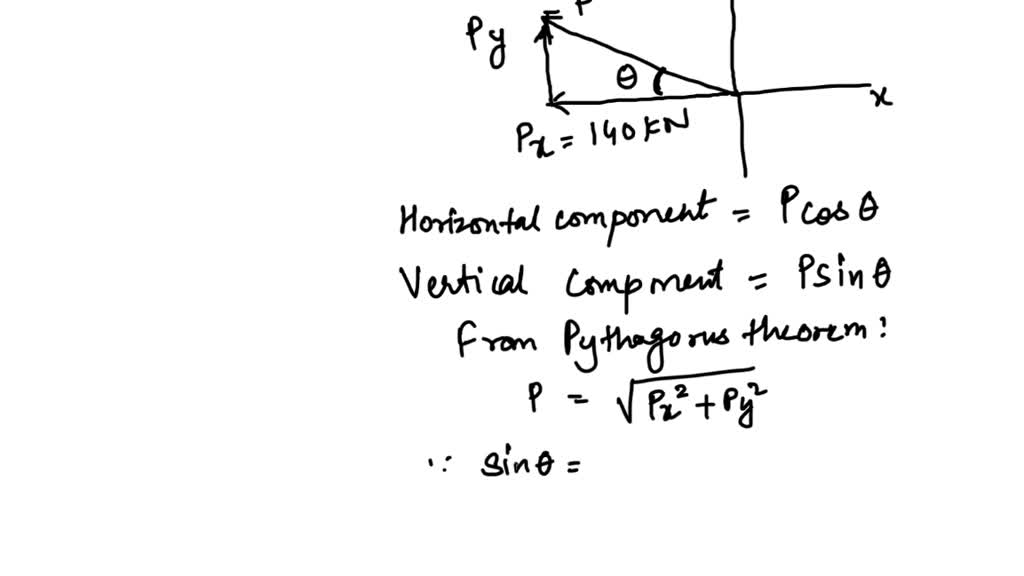 P
Py
θ
x
Px = 140 KN
Horizontal component = P cos θ
Vertical component = P sin θ
From Pythagorus theorem :
P = √Px² + Py²
∵ sin θ =